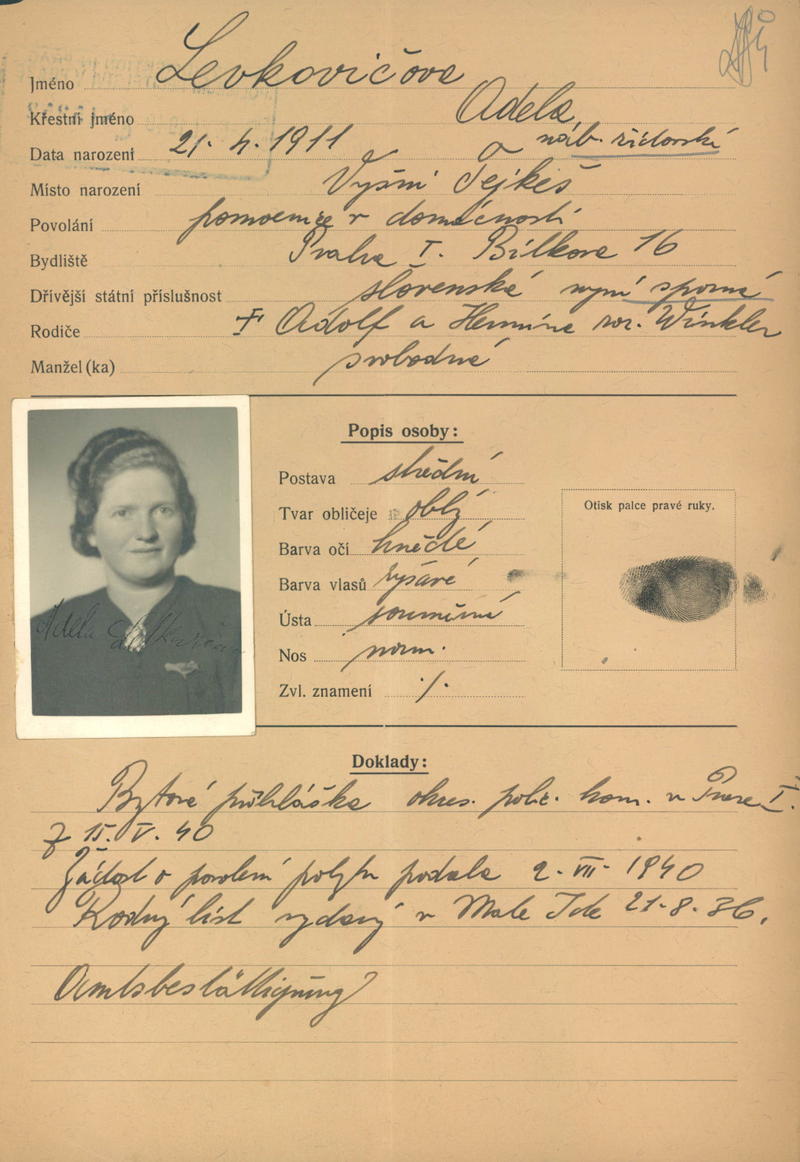 Jméno Levkovičova
Křestní jméno Adela,
Data narození 21. 4. 1911 náb. židovské
Místo narození Vyšní Tejkeš
Povolání pomocnice v domácnosti
Bydliště Praha I. Bílkova 16
Dřívější státní příslušnost slovenská nyní sporná
Rodiče Adolf a Hermine roz. Winkler
Manžel(ka) svobodná
Popis osoby:
Postava střední
Tvar obličeje oblý
Barva očí hnědé
Barva vlasů rysavé
Ústa souměrná
Nos norm.
Zvl. znamení ./.
Otisk palce pravé ruky.
Adela
Doklady:
Bytová přihláška okres. polic. kom. v Praze I.
z 15. V. 40
Žádost o povolení pobytu podala 2. VII. 1940
Rodný list vydaný v Male Ide 21.8.36.
Amtsbestättigung